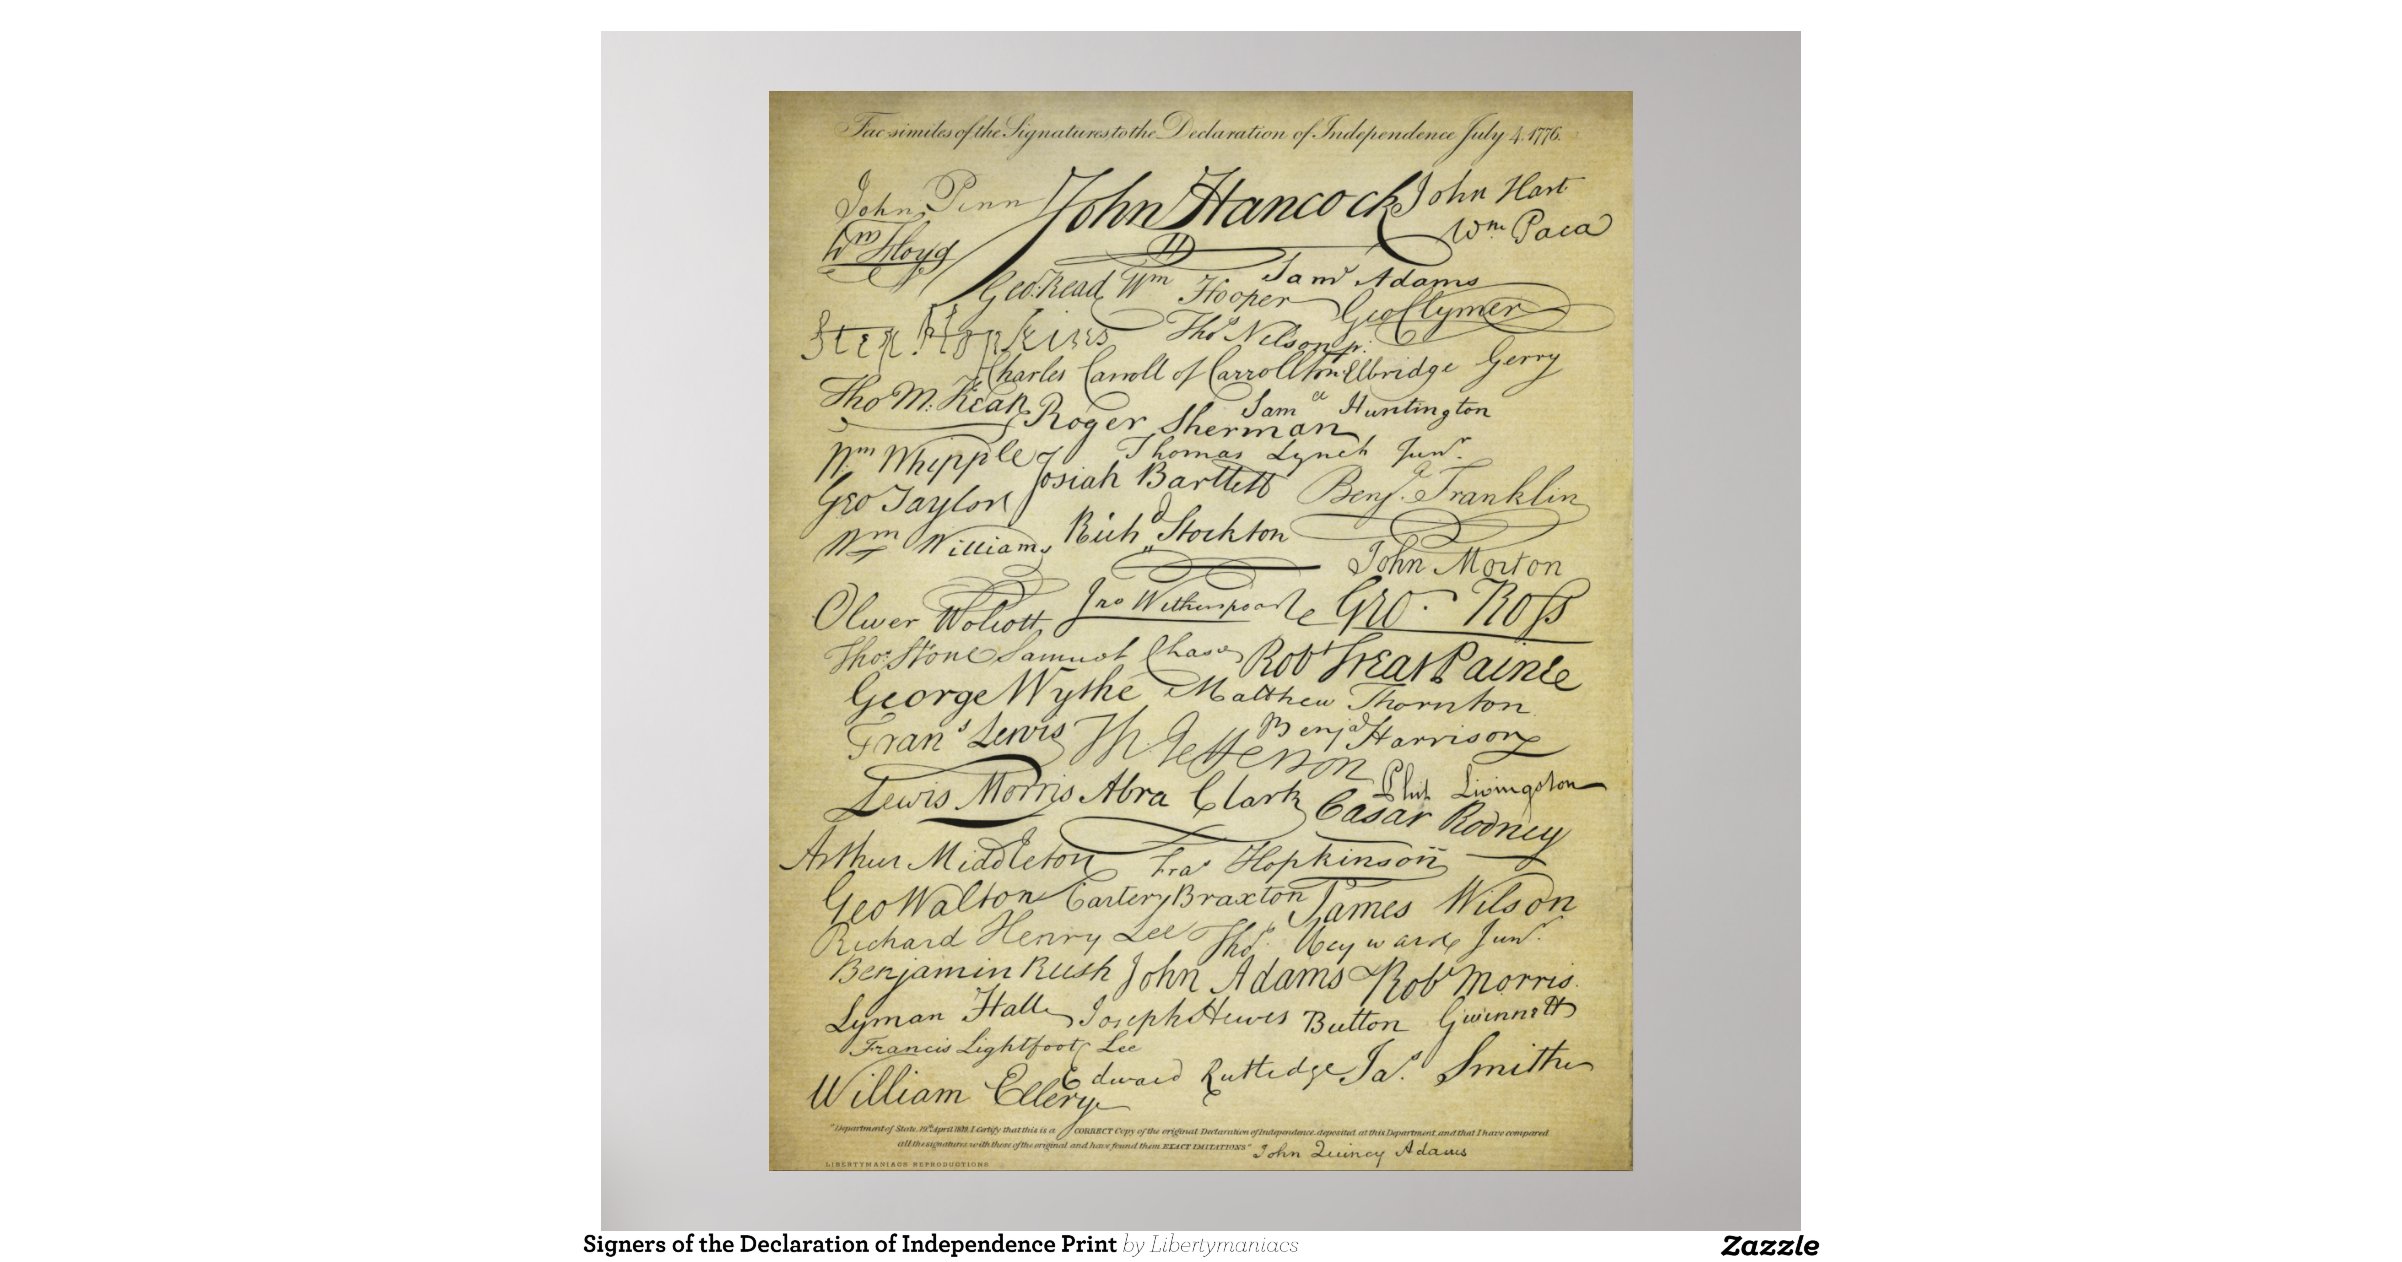 Fac similes of the Signatures to the Declaration of Independence July 4. 1776.
John Penn John Hancock John Hart
Wm Floyd Wm. Paca
Geo. Read Wm Hooper Saml Adams
Step. Hopkins Thos Nelson jr. Geo Clymer
Charles Carroll of Carrollton Elbridge Gerry
Tho M. Kean Roger Sherman Samel Huntington
Wm Whipple Thomas Lynch Junr.
Josiah Bartlett Benj. Franklin
Geo Taylor
Wm Williams Richd Stockton
John Morton
Oliver Wolcott Jno Witherspoon Geo. Ross
Thos. Stone Samuel Chase Robt Treat Paine
George Wythe Matthew Thornton
Frans Lewis Th Jefferson Benja Harrison
Lewis Morris Abra Clark Phil. Livingston
Cæsar Rodney
Arthur Middleton Fras Hopkinson
Geo Walton Carter Braxton James Wilson
Richard Henry Lee Thos. Heyward Junr.
Benjamin Rush John Adams Robt Morris.
Lyman Hall Joseph Hewes Button Gwinnett
Francis Lightfoot Lee
William Ellery Edward Rutledge Jas. Smith
"Department of State, 19th April 1819. I Certify that this is a CORRECT Copy of the original Declaration of Independence, deposited at this Department, and that I have compared
all the signatures with those of the original and have found them EXACT IMITATIONS" John Quincy Adams
LIBERTYMANIACS REPRODUCTIONS
Signers of the Declaration of Independence Print by Libertymaniacs Zazzle